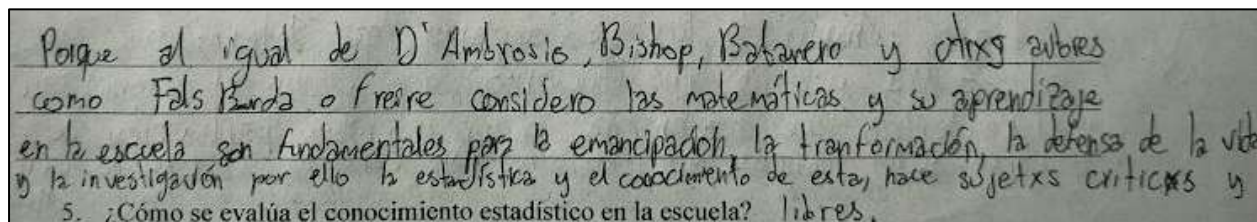 Porque al igual de D'Ambrosio, Bishop, Batanero y otrxs autores
como Fals Borda o freire considero las matemáticas y su aprendizaje
en la escuela son fundamentales para la emancipación, la tranformación, la defensa de la vida
y la investigación por ello la estadística y el conocimiento de esta, hace sujetxs criticxs y
5. ¿Cómo se evalúa el conocimiento estadístico en la escuela? libres.